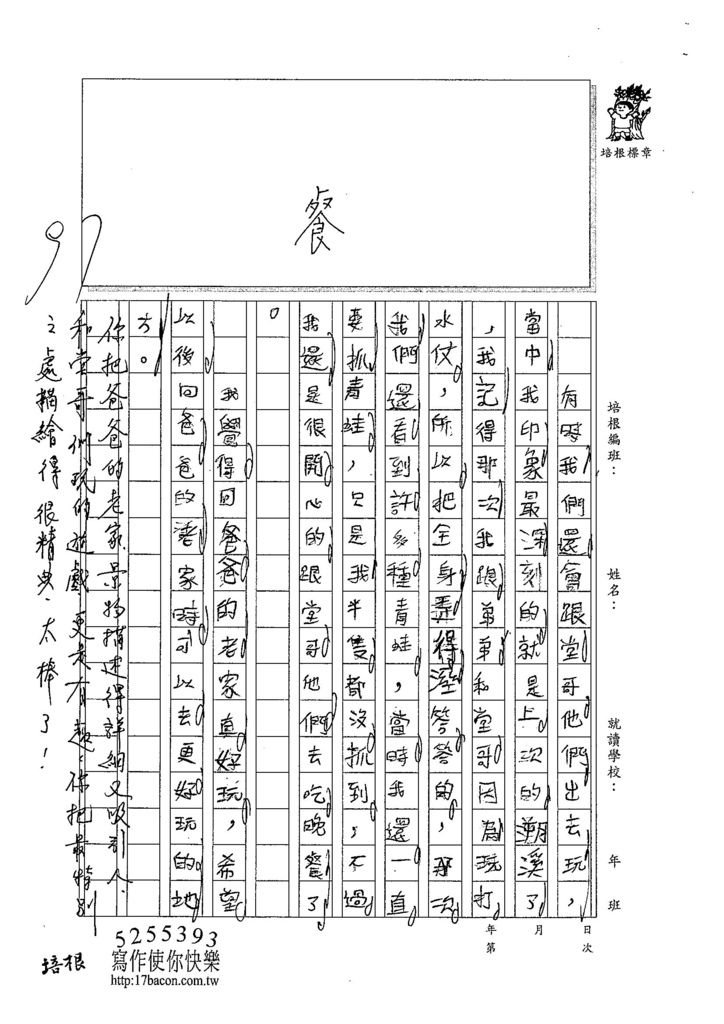 餐
培根標章
97
培根編班：
姓名：
就讀學校：
年
班
有時我們還會跟堂哥他們出去玩，
當中我印象最深刻的就是上次的溯溪了
，我記得那次我跟弟弟和堂哥因為玩打
水仗，所以把全身弄得溼答答的，那次
我們還看到許多種青蛙，當時我還一直
要抓青蛙，只是我半隻都沒抓到，不過
我還是很開心的跟堂哥他們去吃晚餐了
。
我覺得回爸爸的老家真好玩，希望
以後回爸爸的老家時可以去更好玩的地
方。
你把爸爸的老家景物描述得詳細又吸引人，
和堂哥們玩的遊戲更是有趣，你把最特別
之處描繪得很精典，太棒了！
年 月 日
第 次
培根
5255393
寫作使你快樂
http:17bacon.com.tw